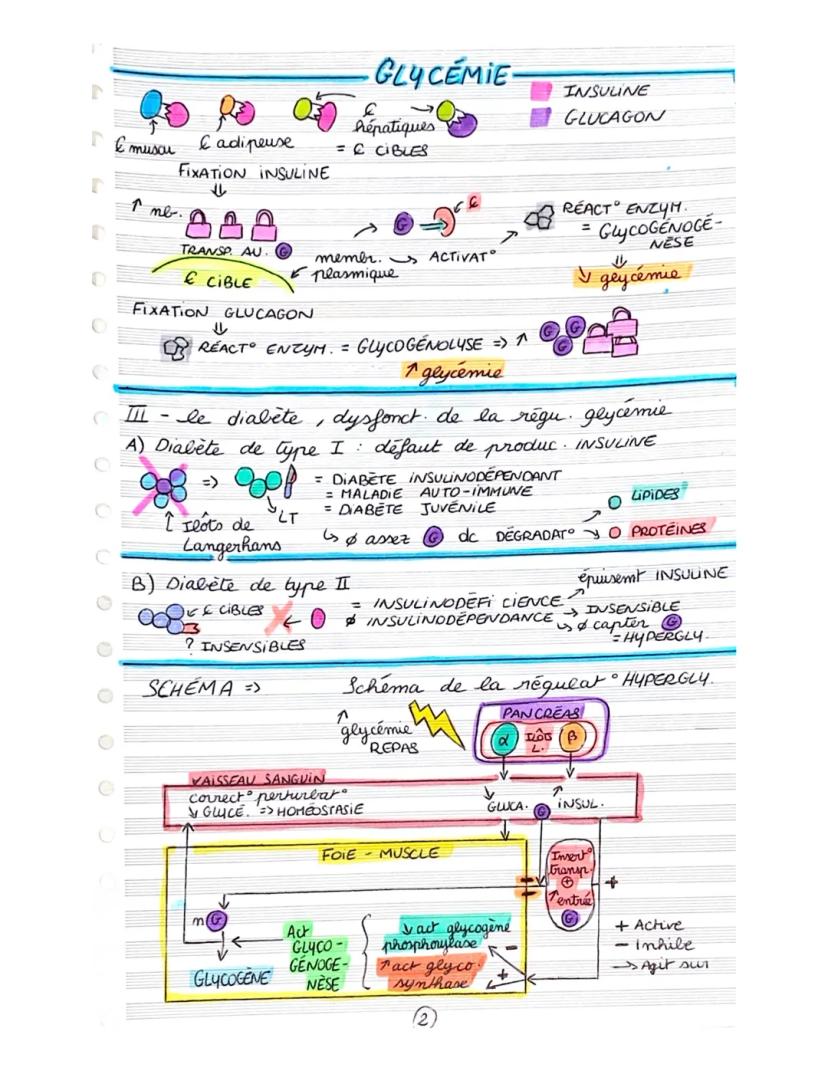 GLYCÉMIE
INSULINE
GLUCAGON
₢ muscu
₢ adipeuse
₢ hépatiques
= ₢ CIBLES
FIXATION INSULINE
⇓
↑ nb.
TRANSP. AU. G
₢ CIBLE
membr. → ACTIVAT°
plasmique
G
₢
RÉACT° ENZYM.
= GLYCOGÉNOGÉ-
NÈSE
⇓
↓ glycémie
FIXATION GLUCAGON
⇓
RÉACT° ENZYM. = GLYCOGÉNOLYSE => ↑
G G G
↑ glycémie
III - le diabète, dysfonct. de la régu. glycémie
A) Diabète de type I : défaut de produc. INSULINE
=>
LT
↑ Ilôts de
Langerhans
= DIABÈTE INSULINODÉPENDANT
= MALADIE AUTO-IMMUNE
= DIABÈTE JUVÉNILE
↳ ø assez G dc DÉGRADAT°
LIPIDES
PROTÉINES
B) Diabète de type II
₢ CIBLES
? INSENSIBLES
épuisemt INSULINE
= INSULINODÉFI CIENCE
ø INSULINODÉPENDANCE → INSENSIBLE
↳ ø capter G
= HYPERGLY.
SCHÉMA =>
Schéma de la régulat° HYPERGLY.
↑
glycémie
REPAS
PANCRÉAS
α ILÔTS β
L.
VAISSEAU SANGUIN
correct° perturbat°
↓ GLYCÉ. => HOMÉOSTASIE
↓ GLUCA. G ↑ INSUL.
FOIE - MUSCLE
Insert°
transp.
+
↑ entrée
G
-
-
+
nG
GLYCOGÈNE
Act
GLYCO-
GÉNOGÉ-
NÈSE
↓ act glycogène
phosphorylase
↑ act glyco.
synthase
-
+
+ Active
- Inhibe
→ Agit sur
2